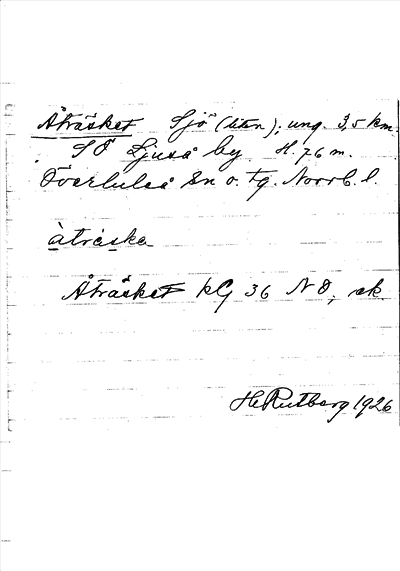 Åträsket Sjö (liten); ung. 3,5 km.
SÖ Ljuså by H. 76 m.
Överluleå Sn o. tg. Norrb. l.
àtrask​e
Åträsket kG 36 NO, ek.
H Rutberg 1926